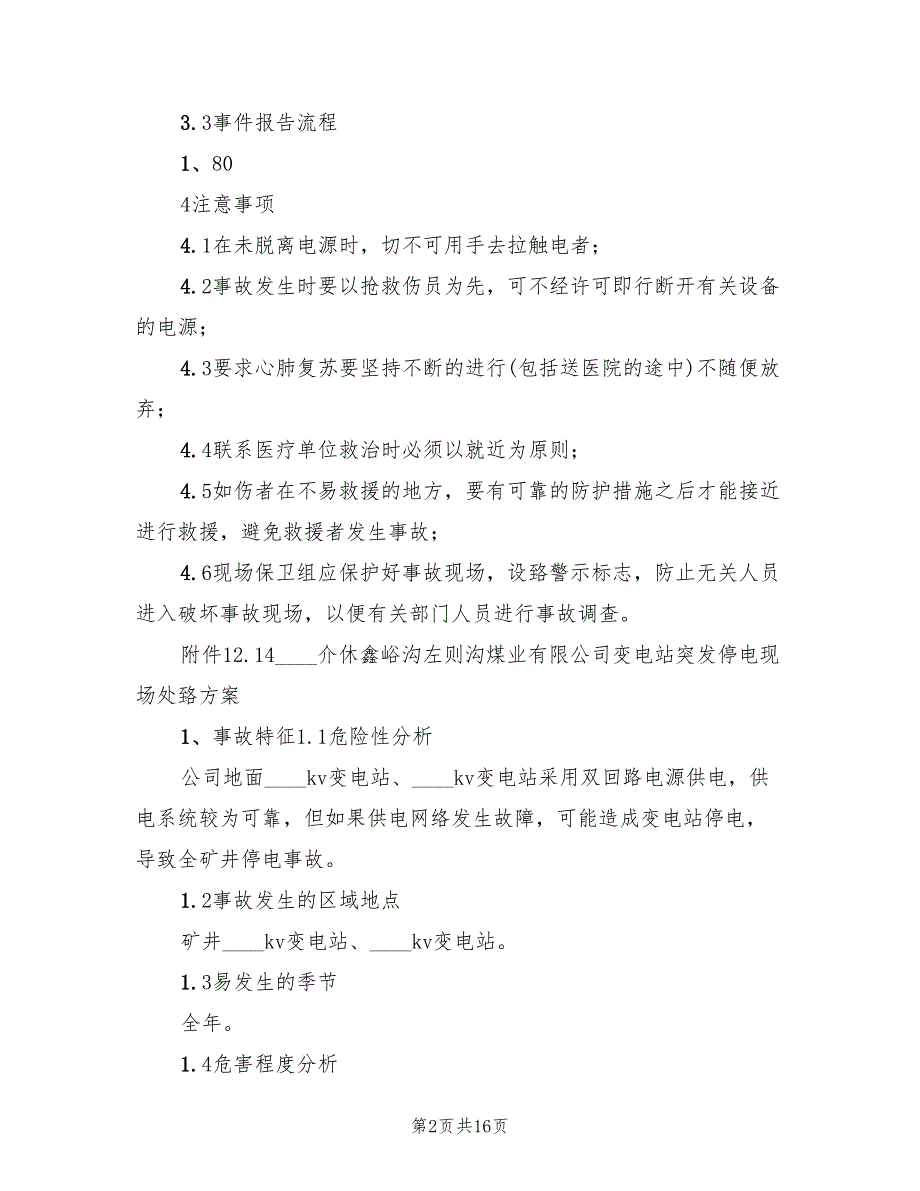 3.3事件报告流程
1、80
4注意事项
4.1在未脱离电源时，切不可用手去拉触电者；
4.2事故发生时要以抢救伤员为先，可不经许可即行断开有关设备
的电源；
4.3要求心肺复苏要坚持不断的进行(包括送医院的途中)不随便放
弃；
4.4联系医疗单位救治时必须以就近为原则；
4.5如伤者在不易救援的地方，要有可靠的防护措施之后才能接近
进行救援，避免救援者发生事故；
4.6现场保卫组应保护好事故现场，设臵警示标志，防止无关人员
进入破坏事故现场，以便有关部门人员进行事故调查。
附件12.14____介休鑫峪沟左则沟煤业有限公司变电站突发停电现
场处臵方案
1、事故特征1.1危险性分析
公司地面____kv变电站、____kv变电站采用双回路电源供电，供
电系统较为可靠，但如果供电网络发生故障，可能造成变电站停电，
导致全矿井停电事故。
1.2事故发生的区域地点
矿井____kv变电站、____kv变电站。
1.3易发生的季节
全年。
1.4危害程度分析
第2页共16页